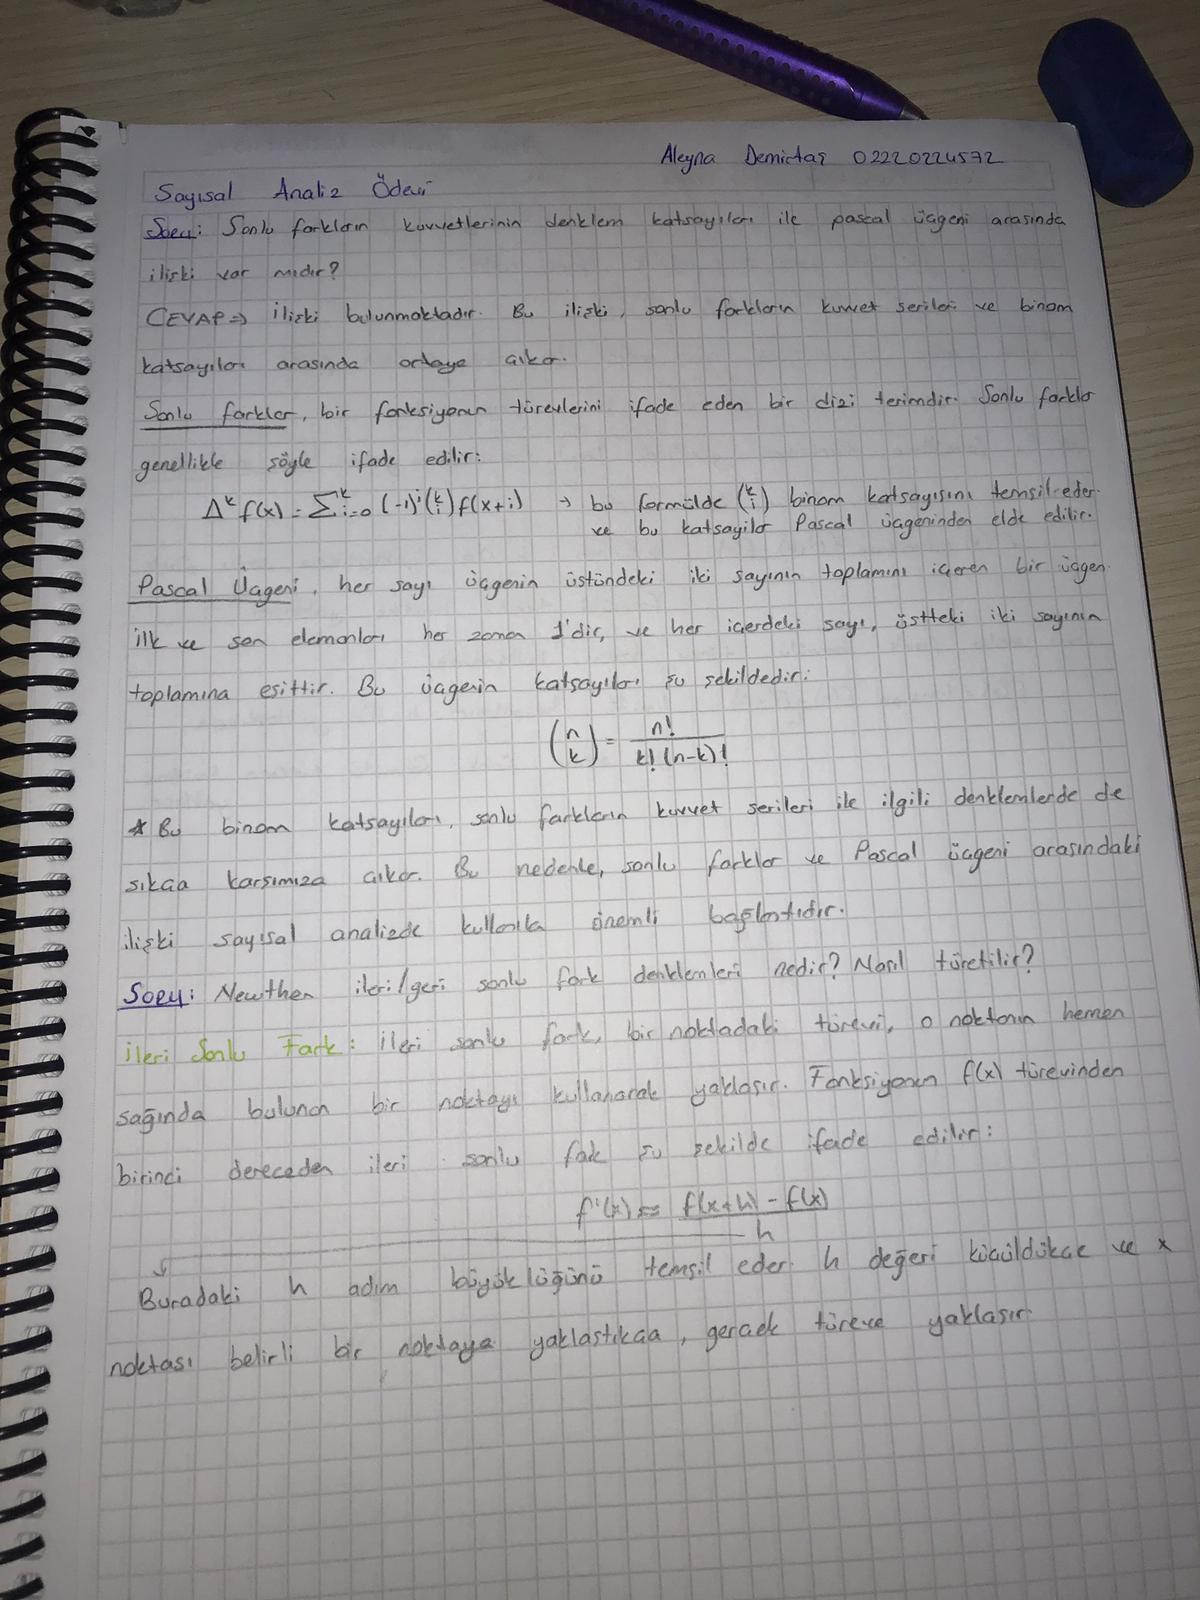 Aleyna Demirtaş 02220224572
Sayısal Analiz Ödevi
Soru: Sonlu farkların kuvvetlerinin denklem katsayıları ile pascal üçgeni arasında
ilişki var mıdır?
CEVAP⇒ ilişki bulunmaktadır. Bu ilişki, sonlu farkların kuvvet serileri ve binom
katsayıları arasında ortaya çıkar.
Sonlu farklar, bir fonksiyonun türevlerini ifade eden bir dizi terimdir. Sonlu farklar
genellikle şöyle ifade edilir:
Δ^k f(x) = Σ^k_{i=0} (-1)^i (k i) f(x+i) → bu formülde (k i) binom katsayısını temsil eder.
ve bu katsayılar Pascal üçgeninden elde edilir.
Pascal Üçgeni, her sayı üçgenin üstündeki iki sayının toplamını içeren bir üçgen.
ilk ve son elemanları her zaman 1'dir, ve her içerdeki sayı, üstteki iki sayının
toplamına eşittir. Bu üçgenin katsayıları şu şekildedir:
(n k) = n! / k! (n-k)!
* Bu binom katsayıları, sonlu farkların kuvvet serileri ile ilgili denklemlerde de
sıkça karşımıza çıkar. Bu nedenle, sonlu farklar ve Pascal üçgeni arasındaki
ilişki sayısal analizde önemli bağlantıdır.
Soru: Newthen ileri/geri sonlu fark denklemleri nedir? Nasıl türetilir?
İleri Sonlu Fark: ileri sonlu fark, bir noktadaki türevi, o noktanın hemen
sağında bulunan bir noktayı kullanarak yaklaşır. Fonksiyonun f(x) türevinden
birinci dereceden ileri sonlu fark şu şekilde ifade edilir:
f'(x) ≈ f(x+h) - f(x) / h
Buradaki h adım büyüklüğünü temsil eder. h değeri küçüldükçe ve x
noktası belirli bir noktaya yaklaştıkça, gerçek türeve yaklaşır.